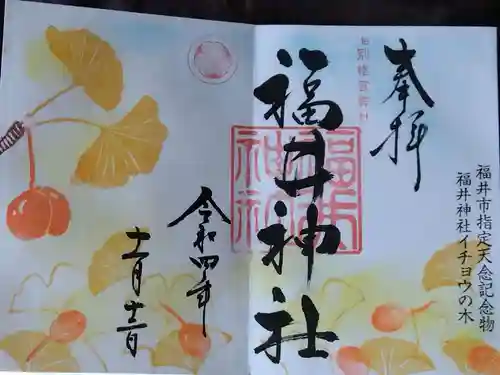 奉拝
福井市指定天念記念物
福井神社イチョウの木
福井神社
福井神社
令和四年
十二月十二日